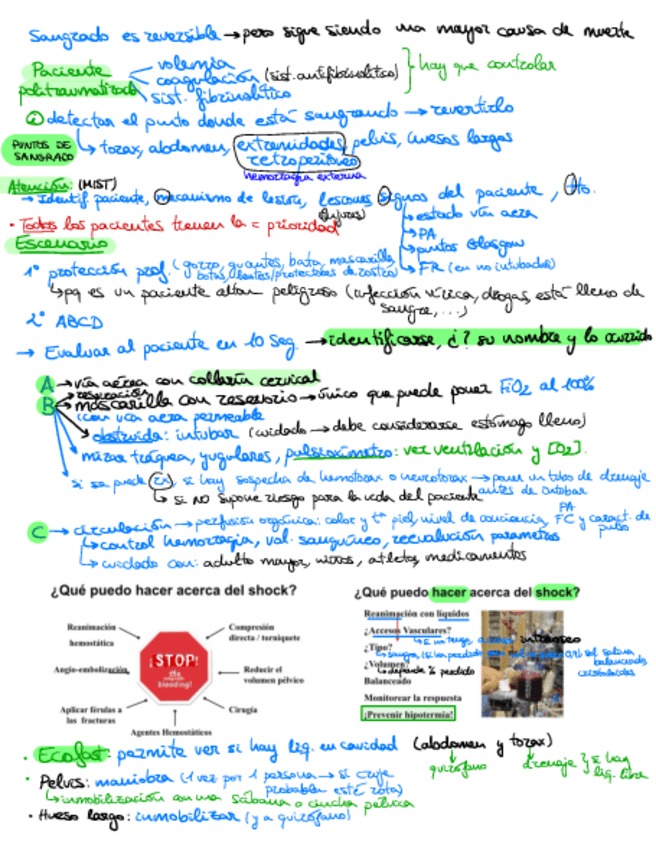 Sangrado es reversible → pero sigue siendo una mayor causa de muerte
Paciente politraumatizado
volemia
coagulación (sist. antifibrinolítico)
sist. fibrinolítico
hay que controlar
detectar el punto donde está sangrando → revertirlo
PUNTOS DE SANGRADO
↳ torax, abdomen, extremidades, pelvis, huesos largos
retroperitoneo
hemorragia externa
Atención: (MIST)
→ Identif paciente, mecanismo de lesión, lesiones, signos del paciente, tto.
(injuries)
• Todos los pacientes tienen la = prioridad
↳ estado vía aerea
↳ PA
↳ puntos Glasgow
↳ FR (en no intubados)
Escenario
1º protección prof. (gorro, guantes, bata, mascarilla,
botas, lentes/protectores de rostro)
↳ pq es un paciente altam peligroso (infección vírica, drogas, está lleno de
sangre, ...)
2º ABCD
→ Evaluar al paciente en 10 seg. → identificarse, ¿? su nombre y lo ocurrido
A → vía aérea con collarín cervical
respiración
B → mascarilla con reservorio → único que puede poner FiO2 al 100%
con vía aerea permeable
obstruida: intubar (cuidado → debe considerarse estómago lleno)
mirar tráquea, yugulares, pulsioxímetro: ver ventilación y [O2].
si se puede RX, si hay sospecha de hemotorax o neumotorax → poner un tubo de drenaje
antes de intubar
↳ si no supone riesgo para la vida del paciente
C → circulación → perfusión orgánica: color y tª piel, nivel de conciencia, PA
FC y caract. de pulso
↳ control hemorragia, vol. sanguíneo, reevalución parametros
↳ cuidado con: adulto mayor, niños, atletas, medicamentos
¿Qué puedo hacer acerca del shock?
Reanimación hemostática
Compresión directa / torniquete
Angio-embolización
¡STOP!
the bleeding!
Reducir el volumen pélvico
Aplicar férulas a las fracturas
Cirugía
Agentes Hemostáticos
¿Qué puedo hacer acerca del shock?
Reanimación con líquidos
¿Accesos Vasculares?
intraoseo
¿Tipo?
¿Volumen?
↳ depende % perdido
Balanceado
Monitorear la respuesta
¡Prevenir hipotermia!
• Ecofast: permite ver si hay liq. en cavidad (abdomen y torax)
quirófano
drenaje
si hay liq. libre
• Pelvis: maniobra (1 vez por 1 persona → si cruje
probablem esté rota)
↳ inmobilización con una sábana o cincha pélvica
• Hueso largo: inmobilizar (y a quirófano)